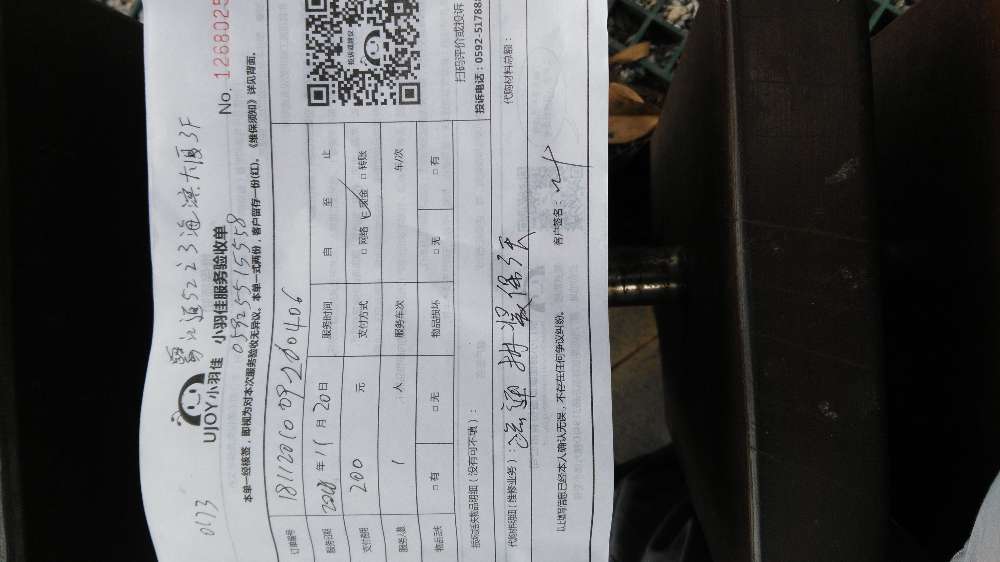 No. 1268025
0173
海滨大厦3F
UJOY小羽佳 小羽佳服务验收单
05925515558
本单一经核签，即视为对本次服务验收无异议。本单一式两份，客户留存一份(红)。《维保须知》详见背面。
订单编号 181120100 09-200406
服务日期 2018 年 11 月 20 日 服务时间 自 至 止
支付费用 200 元 支付方式 □ 网络 □ 现金 □ 转账
服务人数 1 人 服务车次 车/次
物品丢失 □ 有 □ 无 物品损坏 □ 无 □ 有
投诉或建议
扫码评价或投诉
损坏或丢失物品明细（没有可不填）：
投诉电话：0592-51788
代购材料明细（维修业务）：
代购材料总额：
以上填写信息已经本人确认无误，不存在任何争议纠纷。 客户签名：